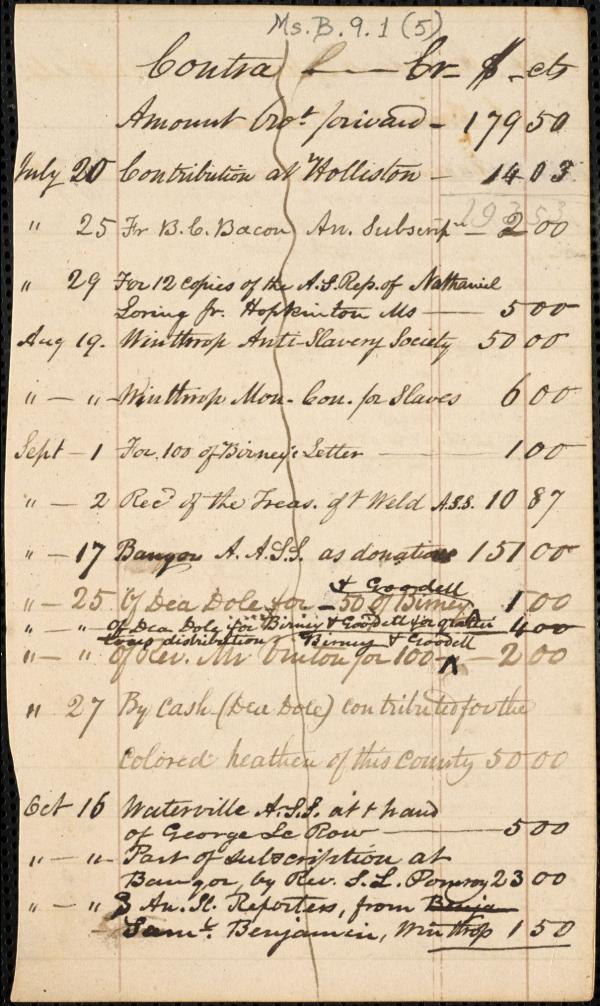 Ms. B. 9. 1 (5)
Contra Cr $ cts
Amount brot forward - 179 50
July 20 Contribution at Holliston - 14 03
193 53
" 25 Fr B. C. Bacon An. Subscripn - 2 00
" 29 For 12 copies of the A. S. Rep. of Nathaniel
Loring Jr. Hopkinton Ms - 5 00
Aug 19. Winthrop Anti-Slavery Society 50 00
" - " - Winthrop Mon. Con. for Slaves 6 00
Sept - 1 For 100 of Birney's Letter 1 00
" - 2 Recd of the Treas. of Weld A.S.S. 10 87
" - 17 Bangor A. A.S.S. as donation 151 00
& Goodell
" - 25 Of Dea Dole for - 50 of Birney 1 00
" - " Of Dea Dole for Birney & Goodell for 4 00
distribution Birney & Goodell
" - " of Rev. Mr Vinton for 100 ^ - 2 00
" 27 By Cash (Dea Dole) contributed for the
colored heathen of this County 50 00
Oct 16 Waterville A.S.S. at & hand
of George Le Row - 5 00
" - " - Part of subscription at
Bangor, by Rev. S. L. Pomroy 23 00
" - " 3 An. Sl. Reporters, from Benja
- Saml. Benjamin, Winthrop 1 50